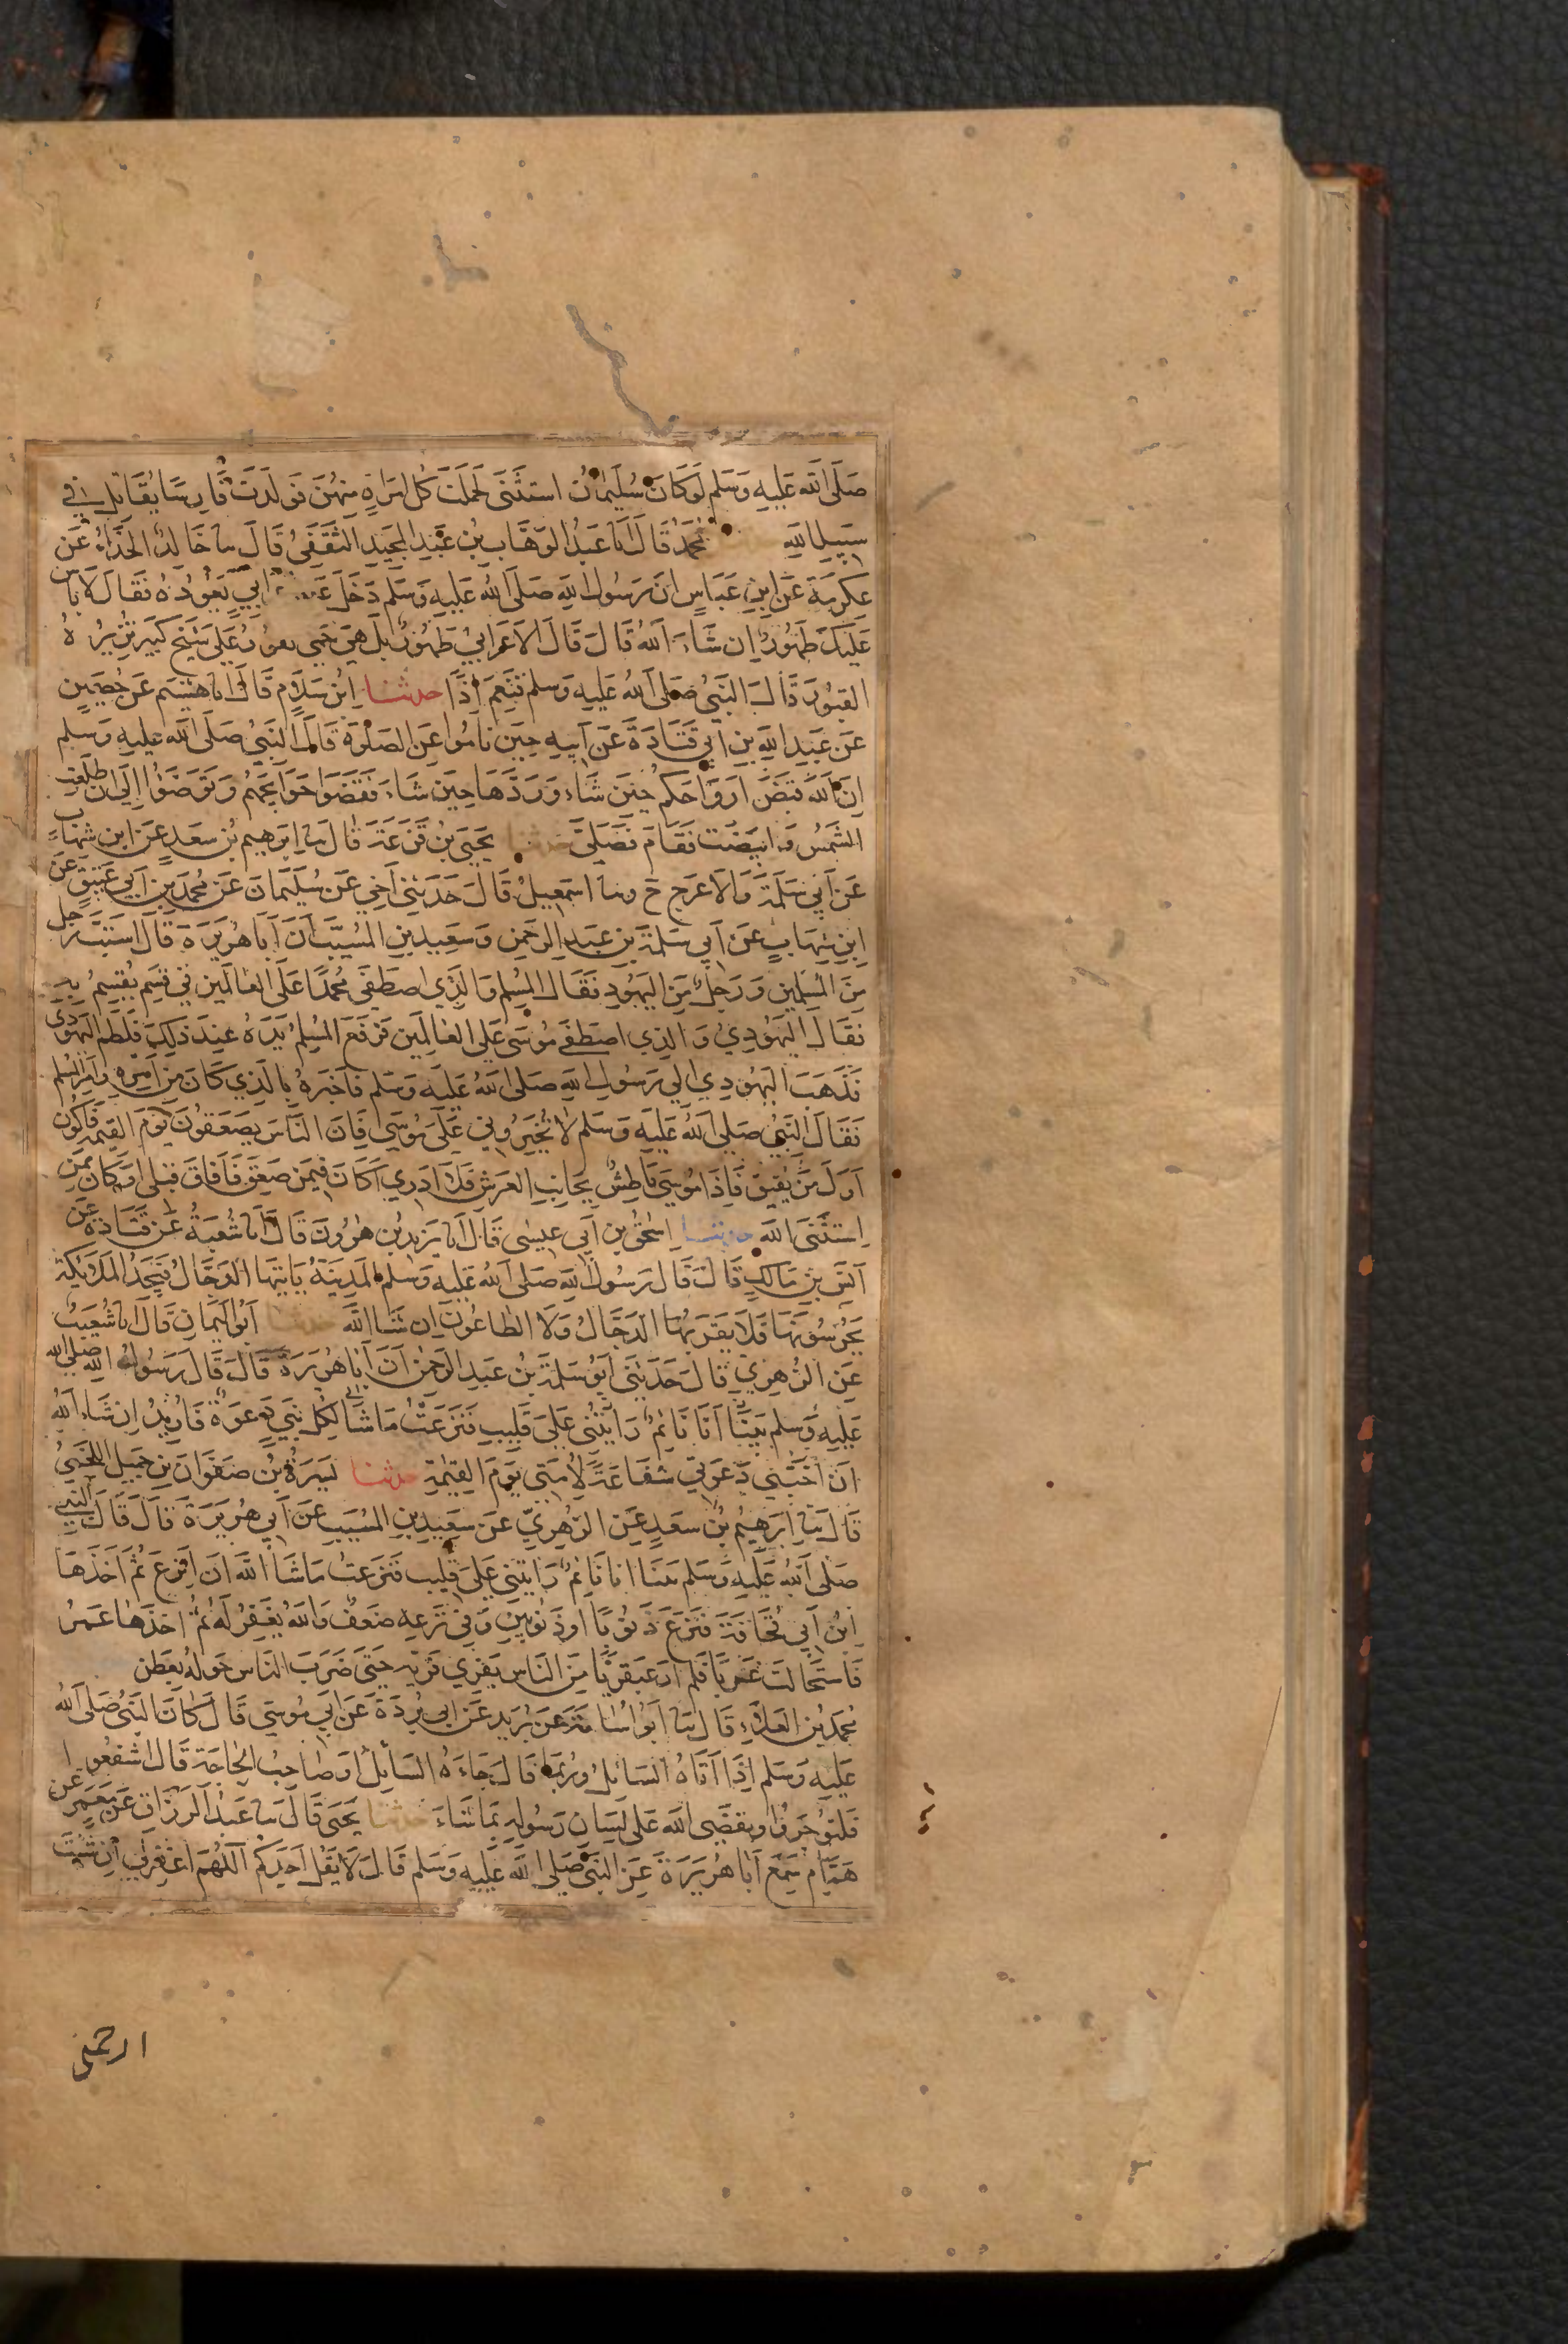 صَلَى اللَّه عَلَيهِ وَسَلم لَو كَانَ سُلَيمَانُ استَثنَى لَحَمَلَت كُل امرَاةٍ مِنهُنَ فَوَلَدَت فَارِسًا يُقَاتِل في
سَبِيلِ اللهِ مُحَمَدٌ قَالَ انا عَبدُ الوَهَاب بنُ عَبدِ المَجِيدِ الثَقَفِيُ قَالَ ثنا خَالِدٌ الحَذَاءُ عَن
عِكرِمَةَ عَن ابنِ عَبَاسٍ ان رَسُول اللهِ صَلَى اللهُ عَلَيهِ وَسَلَم دَخَلَ عَلَى اعرابيٍ يَعُودُهُ فَقَالَ لَا بَاس
عَلَيكَ طَهُورٌ اِن شَاءَ اللهُ قَالَ قَالَ الاَعرَابيُ طَهُورٌ بَل هِيَ حُمى تفورُ عَلَى شَيخٍ كَبِيرٍ تُزِيرُهُ
القبُورَ قَالَ النَبيُ صَلى اللهُ عَلَيهِ وَسلم فَنَعَم اِذًا حدثنا ابنُ سَلَام قَالَ انا هُشَيم عَن حُصَينٍ
عَن عَبدِ اللهِ بنِ ابي قَتَادَةَ عَن اَبِيهِ حِينَ نَامُوا عَن الصَلوٰةِ قَالَ النَبيُ صَلَى اللهُ عَلَيهِ وَسَلم
اِنَ اللهَ قَبَضَ اَروَاحَكُم حِينَ شَاءَ وَرَدَّهَا حِينَ شَاءَ فَقَضَوا حَوَايجَهُم وَتَوَضَؤُا اِلَى ان طلعت
الشَمسُ وَابيَضَت فَقَامَ فَصَلَّى حدثنا يَحيَى بنُ قَزَعَةَ قَالَ ثنا اِبرَهِيم بنُ سَعدٍ عَن ابنِ شِهَاب
عَن اَبِي سَلَمَةَ وَالاَعرَجِ ح وثنا اسمَعِيلُ قَالَ حَدَثَنِي اَخِي عَن سُلَيمَانَ عَن مُحَمَدِ بنِ اَبي عَتِيقٍ عَن
ابنِ شِهَابٍ عَن اَبِي سَلَمَةَ بنِ عَبدِ الرَحمٰنِ وَسَعِيدِ بنِ المُسَيَّب اَنَ اَبَا هُرَيرَةَ قَالَ استَبَّ رَجل
مِنَ المُسلِمِين وَرَجُلٌ مِنَ اليَهُودِ فَقَالَ المُسلِم وَالَذِي اصطَفَى مُحَمَدًا عَلَى العَالَمِين في قَسَمٍ يُقسِمُ بِهِ
فَقَالَ اليَهُودِيُ وَالَذِي اصطَفَى مُوسَى عَلَى العَالَمِين فَرَفَعَ المُسلِمُ يَدَهُ عِندَ ذَلِكَ فَلَطَم اليَهُودِي
فَذَهَبَ اليَهُودِي اِلى رَسُولِ اللهِ صَلَى اللهُ عَلَيهِ وَسَلم فَاَخبَرَهُ بِالَذِي كَانَ مِن اَمرِهِ وَاَمرِ المُسلِم
فَقَالَ النَبيُ صَلى اللهُ عَلَيهِ وَسَلم لَا تُخَيِرُونِي عَلَى مُوسَى فَاِنَ النَاسَ يَصعَقُونَ يَومَ القِيمَةِ فَاَكُون
اَوَلَ مَن يُفِيقُ فَاِذَا مُوسَى بَاطِشٌ بِجَانِبِ العَرشِ فَلَا اَدرِي اَكَانَ فِيمَن صَعِقَ فَاَفَاقَ قَبلِي اَو كَانَ مِمَن
استَثنَى اللهَ حدثنا اِسحٰقُ بن اَبي عِيسٰى قَالَ انا يَزِيدُ بن هٰرُونَ قَالَ انا شُعبَةُ عَن قَتَادَةَ عَن
اَنَسِ بنِ مَالِكٍ قَالَ قَالَ رَسُولُ اللهِ صَلَى اللهُ عَلَيهِ وَسَلم المَدِينَةُ يَاتِيهَا الدَجَّالُ فَيَجِدُ المَلَائِكَة
يَحرُسُونَهَا فَلَا يَقرَبُهَا الدَجَالُ وَلَا الطَاعُونُ اِن شَا اللهُ حدثنا اَبُو اليَمَانِ قَالَ انا شُعَيبٌ
عَن الزُهرِيِ قَالَ حَدَثَنِي اَبُو سَلَمَةَ بنُ عَبدِ الرَحمٰنِ اَنَ اَبَا هُرَيرَةَ قَالَ قَالَ رَسُولُ اللهِ صلى الله
عَلَيهِ وَسلم بَينَا اَنَا نَائِمٌ رَايتُنِي عَلَى قَلِيبٍ فَنَزَعتُ مَا شَا الله لِكُلِ نَبِيٍ دَعوَةٌ فَاُرِيدُ اِن شَاء اللهُ
اَن اَختَبِي دَعوَتي شَفَاعَةً لِاُمَتي يَومَ القِيٰمَةِ حدثنا يَسَرَةُ بنُ صَفوَانَ بنِ جَمِيلِ اللخميُ
قَالَ ثنا اِبرَهِيمُ بنُ سَعدٍ عَن الزُهرِيِّ عَن سَعِيدِ بنِ المُسَيَب عَن اَبي هُرَيرَةَ قَالَ قَالَ النَبي
صَلى اللهُ عَلَيهِ وَسَلم بَينَا انَا نَائِمٌ رَايتُنِي عَلَى قَلِيبٍ فَنَزَعتُ مَا شَا اللهُ اَن اَنزِعَ ثُمَ اَخَذَهَا
ابنُ اَبي قُحَافَةَ فَنَزَعَ ذَنُوبًا اَو ذَنُوبَينِ وَفي نَزعِهِ ضَعفٌ وَاللهُ يَغفِرُ لَهُ ثُمَ اخَذَهَا عُمَرُ
فَاستَحَالَت غَربًا فَلَم اَرَ عَبقَرِيًا مِنَ النَاسِ يَفرِي فَرِيَه حَتَى ضَرَبَ النَاسُ حَولَهُ بِعَطَن
مُحَمَدُ بنُ العَلَاءِ قَالَ ثنا اَبُو اُسَامَةَ عَن بُرَيدٍ عَن ابي بُردَةَ عَن اَبي مُوسَى قَالَ كَانَ النَبيُ صَلَى اللهُ
عَلَيهِ وَسَلم اِذَا اَتَاهُ السَائِلُ وَرُبَمَا قَالَ جَاءَهُ السَائِلُ اَو صَاحِبُ الحَاجَةِ قَالَ اشفَعُوا
فَلتُوجَرُوا وَيَقضِي اللهُ عَلَى لِسَانِ رَسُولِهِ بِمَا شَاءَ حدثنا يَحيَى قَالَ ثنا عَبدُ الرَزَاقِ عَن مَعمَرٍ عَن
هَمَّامٍ سَمِعَ اَبَا هُرَيرَةَ عَن النَبيِ صَلى اللهُ عَلَيهِ وَسَلم قَالَ لَا يَقُل اَحَدُكُم اَللهُمَ اغفِرلِي اِن شئتَ
ارحمني